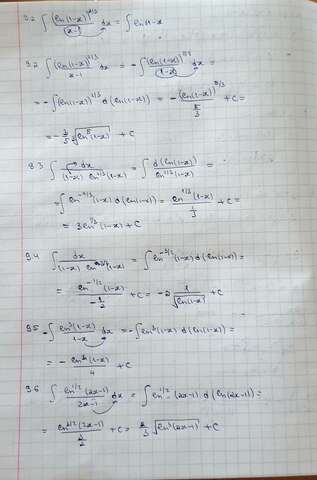 9.2 ∫ (ln(1-x))^2/3 / x-1 dx = ∫ ln(1-x)
9.2 ∫ (ln(1-x))^2/3 / x-1 dx = -∫ (ln(1-x))^2/3 / (1-x) dx =
= -∫ (ln(1-x))^2/3 d(ln(1-x)) = - (ln(1-x))^5/3 / 5/3 + C =
= -3/5 ∛ln^5(1-x) + C
9.3 ∫ dx / (1-x) ln^2/3(1-x) = ∫ d(ln(1-x)) / ln^2/3(1-x) =
= ∫ ln^-2/3(1-x) d(ln(1-x)) = ln^1/3(1-x) / 1/3 + C =
= 3 ln^1/3(1-x) + C
9.4 ∫ dx / (1-x) ln^3/2(1-x) = ∫ ln^-3/2(1-x) d(ln(1-x)) =
= ln^-1/2(1-x) / -1/2 + C = -2 1/√ln(1-x) + C
9.5 -∫ ln^3(1-x) / 1-x dx = -∫ ln^3(1-x) d(ln(1-x)) =
= - ln^4(1-x) / 4 + C
9.6 ∫ ln^1/2(2x-1) / 2x-1 dx = ∫ ln^1/2 (2x-1) d(ln(2x-1)) =
= ln^3/2(2x-1) / 3/2 + C = 2/3 √ln^3(2x-1) + C